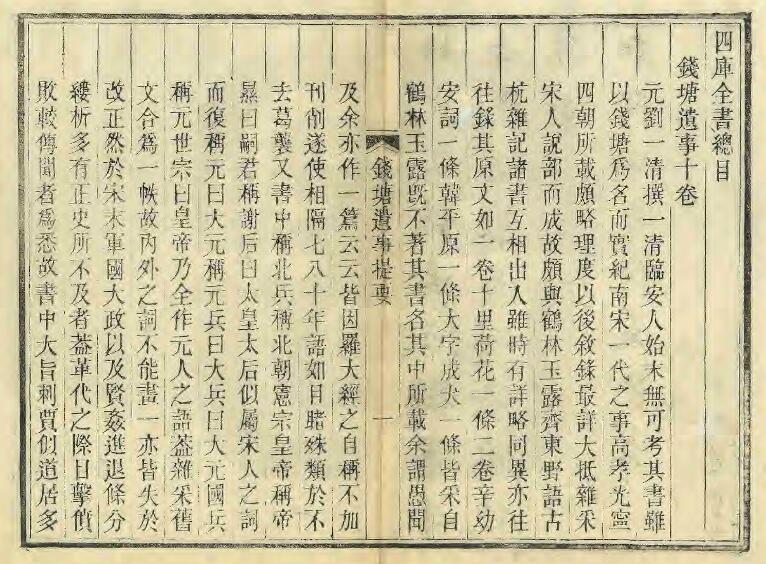 四庫全書總目
錢塘遺事十卷
元劉一清撰一清臨安人始末無可考其書雖
以錢塘爲名而實紀南宋一代之事高孝光寧
四朝所載頗略理度以後敘錄最詳大抵雜采
宋人說部而成故頗與鶴林玉露齊東野語古
杭雜記諸書互相出入雖時有詳略同異亦往
往錄其原文如一卷十里荷花一條二卷辛幼
安詞一條韓平原一條大字成犬一條皆采自
鶴林玉露既不著其書名其中所載余謂愚聞
錢塘遺事提要
一
及余亦作一篇云云皆因羅大經之自稱不加
刊削遂使相隔七八十年語如目睹殊類於不
去葛龔又書中稱北兵稱北朝憲宗皇帝稱帝
㬎曰嗣君稱謝后曰太皇太后似屬宋人之詞
而復稱元曰大元稱元兵曰大兵曰大元國兵
稱元世宗曰皇帝乃全作元人之語葢雜采舊
文合爲一帙故內外之詞不能畫一亦皆失於
改正然於宋末軍國大政以及賢姦進退條分
縷析多有正史所不及者葢革代之際目擊僨
敗較傳聞者爲悉故書中大旨刺賈似道居多